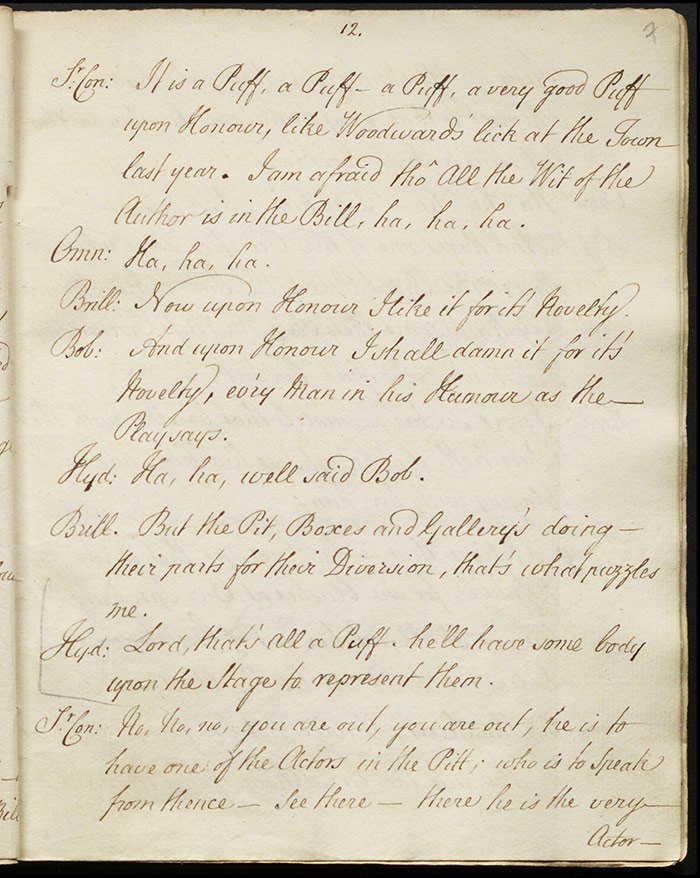 12.
2
Sr. Con: It is a Puff, a Puff – a Puff, a very good Puff
upon Honour, like Woodward's lick at the Town
last year. I am afraid tho' All the Wit of the
Author is in the Bill, ha, ha, ha.
Omn: Ha, ha, ha.
Brill: Now upon Honour I like it for it's Novelty.
Bob: And upon Honour I shall damn it for it's
Novelty, ev'ry Man in his Humour as the —
Play says.
Hyd: Ha, ha, well said Bob.
Brill. But the Pit, Boxes and Gallery's doing —
their parts for their Diversion, that's what puzzles
me.
Hyd: Lord, that's all a Puff. he'll have some body
upon the Stage to represent them.
Sr. Con: No, No, no, you are out, you are out, he is to
have one of the Actors in the Pitt; who is to speak
from thence — See there — there he is the very —
Actor —